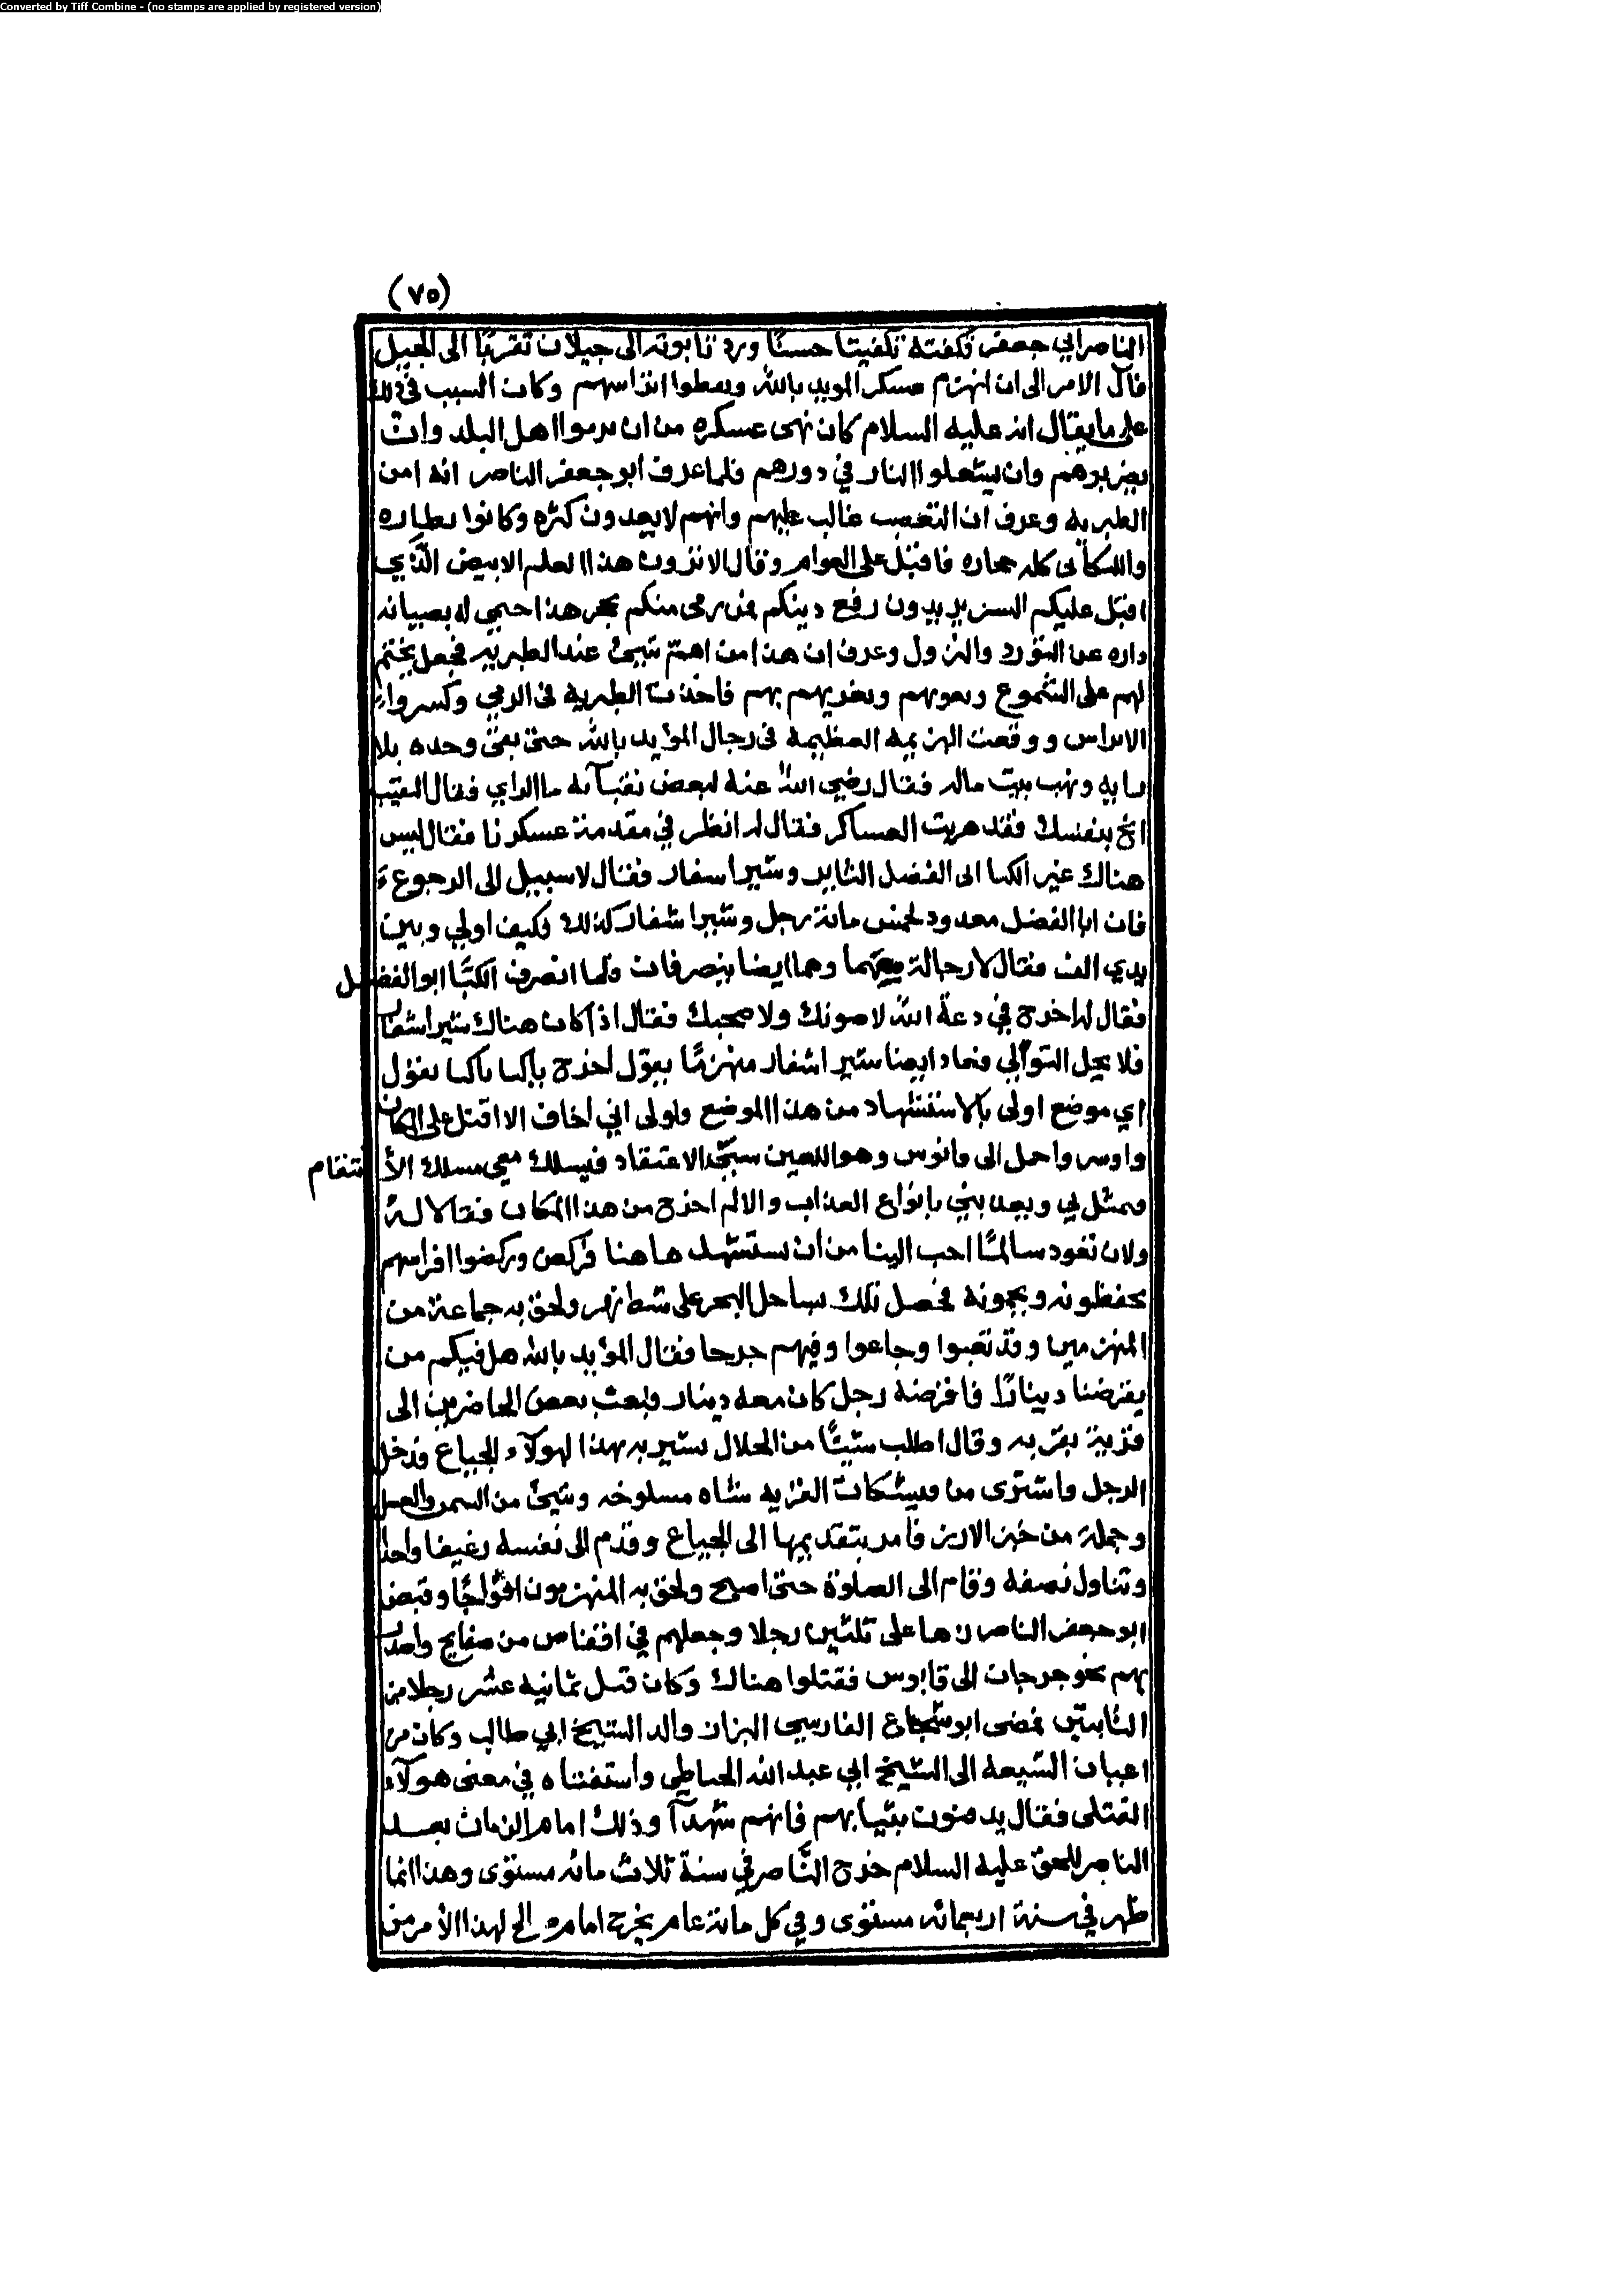 Converted by Tiff Combine - (no stamps are applied by registered version)
(٧٥)
الناصر ابي جعفر تكفته تكفيتا حسنًا ورد تابوته الى جيلان تقربًا الى الجبل
فآل الامر الى ان انهزم عسكر المويد بالله وبعطوا اتراسهم وكان السبب في ذلك
على ما يقال انه عليه السلام كان نهى عسكره من ان يرموا اهل البلد وان
يضربوهم وان يشعلوا النار في دورهم فلما عرف ابو جعفر الناصر انه امن
الطبريه وعرف ان التعصب غالب عليهم وانهم لا يعدون كثره وكانوا نطاره
والسكك كله حجاره فاقبل على العوام وقال الا ترون هذا العلم الابيض الذي
اقبل عليكم يريدون رفع دينكم فمن رمى منكم بحجر هذا حمي له بصيانه
داره عن التورد والنزول وعرف ان هذا من اهم شيئ عند الطبريه فجعل يختم
لهم على الشموع ويغريهم بهم فاخذت الطبريه في الرمي وكسروا
الاتراس ووقعت الهزيمه العظيمه في رجال المؤيد بالله حتى بقي وحده بلا
دابه ونهب بيت ماله فقال رضي الله عنه لبعض نقبآئه ما الراي فقال النقيب
انج بنفسك فقد هربت العساكر فقال له انظر في مقدمة عسكرنا فقال ليس
هناك غير الكيا ابى الفضل الثاير وشيراسفار فقال لا سبيل الى الرجوع
فان ابا الفضل معدود لخمس مائة رجل وشيراشفار كذلك فكيف اولي وبين
يدي الف فقال لا رجالة معهما وهما ايضا ينصرفان فلما انصرف الكيا ابو الفضل
فقال له اخرج في دعة الله لا صونك ولا صحبك فقال اذا كان هناك شيراشفار
فلا يحل التوالي فعاد ايضا شيراشفار منهزمًا يقول اخرج ياكيا ياكيا يقول
اي موضع اولى بالاستشهاد من هذا الموضع ولولى اني اخاف الا اقتل على المكان
واوسر واحمل الى مانوس وهو اللعين سيئ الاعتقاد فيسلك معي مسلك الأنتقام
ويمثل بي ويعذبني بانواع العذاب والا لم اخرج من هذا المكان فقالا له
ولان تعود سالمًا احب الينا من ان تستشهد هاهنا فركض وركضوا افراسهم
يحفظونه ويحمونه فحصل تلك بساحل البحر على شط نهر ولحق به جماعة من
المنهزمين وقد تعبوا وجاعوا وفيهم جرحا فقال المؤيد بالله هل فيكم من
يقرضنا دينارًا فاقرضه رجل كان معه دينار فبعث بعض الحاضرين الى
قرية بقربه وقال اطلب شيئًا من الحلال نشتريه بهذا لهولآء الجياع فدخل
الرجل واشترى من القريه شاه مسلوخه وشيئ من السمن والعسل
وجملة من خبز الارز فامر بتقديمها الى الجياع وقدم الى نفسه رغيفا واحدا
وتناول نصفه وقام الى الصلوة حتى اصبح ولحق به المنهزمون افواجًا وقبض
ابو جعفر الناصر زها على ثلثين رجلا وجعلهم في اقفاص من صفايح وانفذ
بهم نحو جرجان الى قابوس فقتلوا هناك وكان قتل ثمانية عشر رجلا من
الثابتين فمضى ابو شجاع الفارسي البزاز والد الشيخ ابي طالب وكان من
اعيان الشيعه الى الشيخ ابي عبد الله الحناطي واستفتاه في معنى هولآء
القتلى فقال يدفنون بثيابهم فانهم شهدآ وذلك امام الزمان بعد
الناصر للحق عليه السلام خرج النّاصر في سنة ثلاث مائه مستوى وهذا انما
ظهر في سنة اربعمائه مستوى وفي كل مائة عام يخرج امام صالح لهذا الأمر من